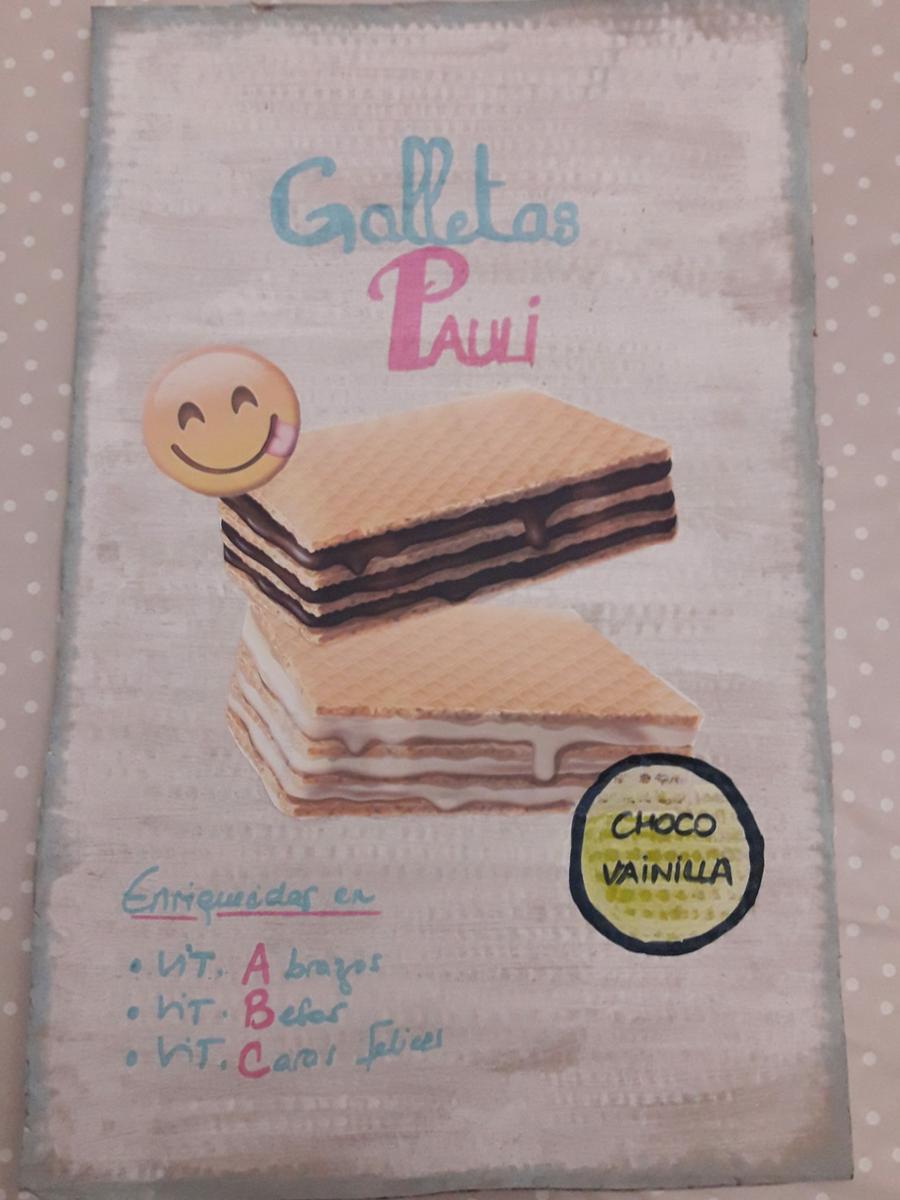 Galletas
PAULi
CHOCO
VAiNiLLA
Enriquecidas en
• ViT. Abrazos
• ViT. Besos
• ViT. Caras felices